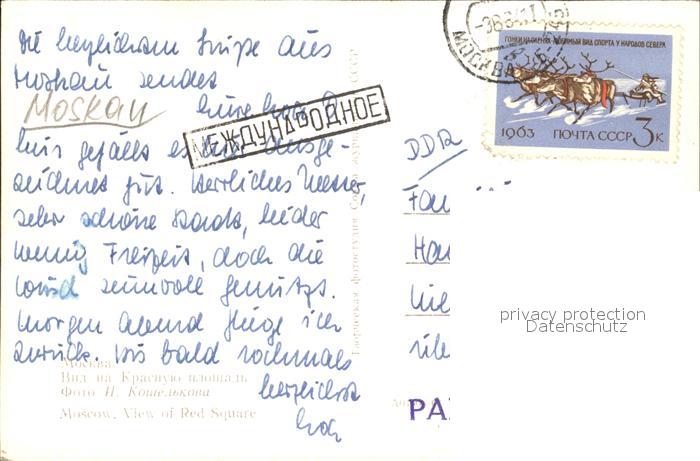 Die herzlichsten Grüße aus
Moskau sendet
Moskau
МЕЖДУНАРОДНОЕ
hier gefällt es ausge-
zeichnet gut. Herrliches Wetter,
sehr schöne Stadt, leider
wenig Freizeit, doch die
wird sinnvoll genutzt.
Morgen abend fliege ich
zurück. Bis bald nochmals
herzlichst
Москва
Вид на Красную площадь
Фото Н. Кошелькова
Moscow. View of Red Square
Творческая фотостудия Союза СССР
МОСКВА
ГОНКИ НА ОЛЕНЯХ - ЛЮБИМЫЙ ВИД СПОРТА У НАРОДОВ СЕВЕРА
1963 ПОЧТА СССР 3 К
DDR
Fa
Ha
PA
privacy protection
Datenschutz